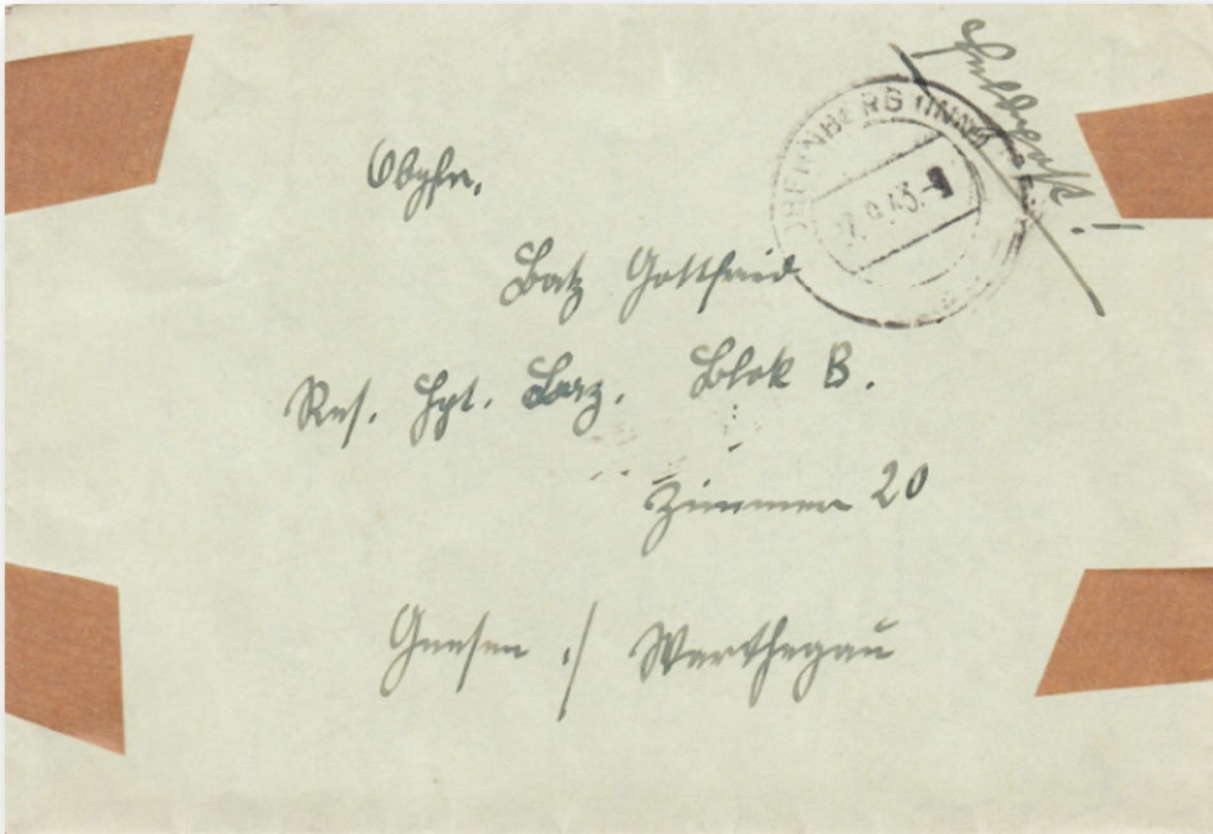 Feldpost!
OBERNBERG (INN)
27.9.43.-
Obgfr.
Batz Gottfried
Res. Lzt. Larz. Blok B.
Zimmer 20
Gnesen ./ Warthegau